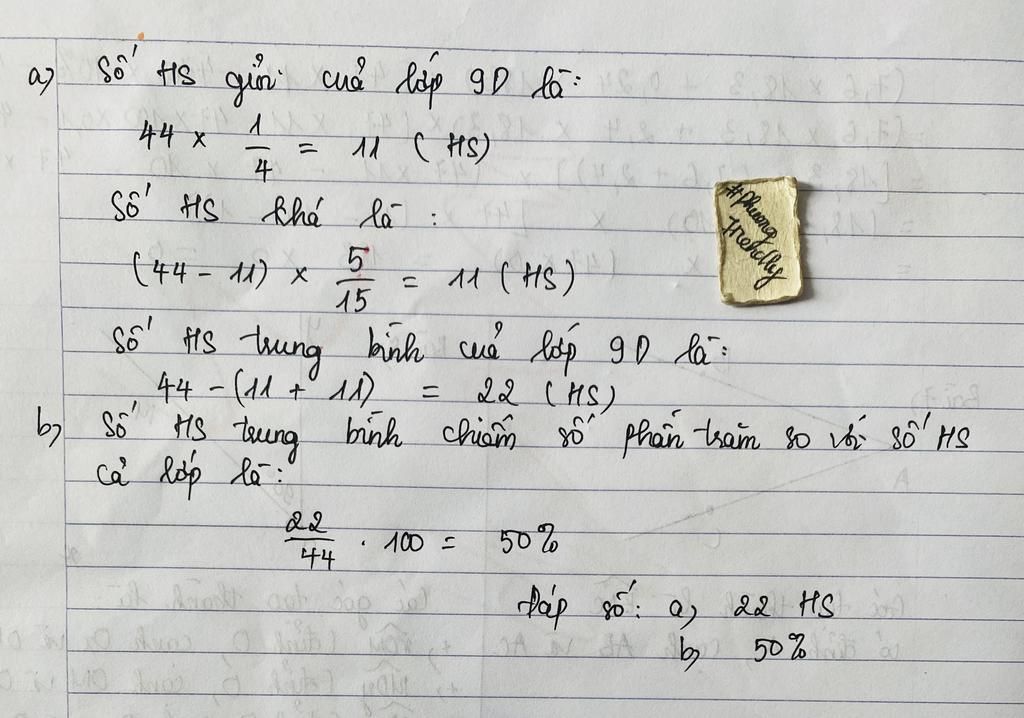 a) Số HS giỏi của lớp 9D là:
44 × 1/4 = 11 (HS)
Số HS khá là:
(44 - 11) × 5/15 = 11 (HS)
Số HS trung bình của lớp 9D là:
44 - (11 + 11) = 22 (HS)
b) Số HS trung bình chiếm số phần trăm so với số HS
cả lớp là:
22/44 . 100 = 50%
Đáp số: a) 22 HS
b) 50%
#Phuong